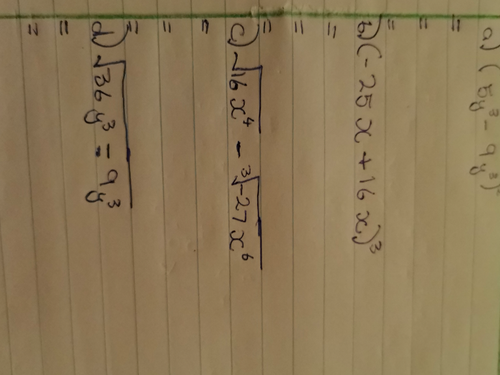 a) (5y³ - 9y³)
=
=
=
b) (-25x + 16x)³
=
=
=
=
c) √16x⁴ - ³√-27x⁶
=
=
=
d) √36y³ - 9y³
=
=